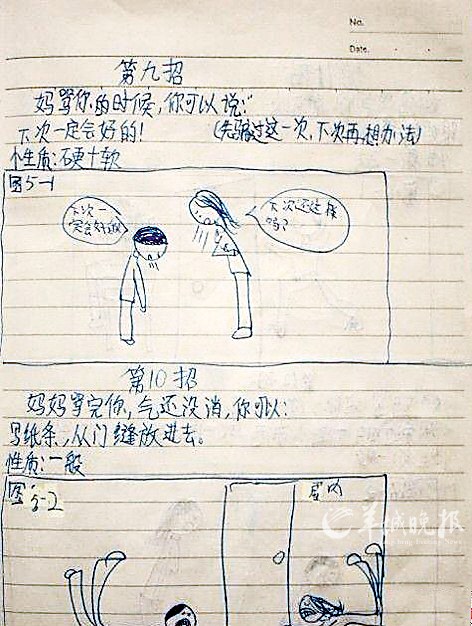 No.
Date.
第九招
妈骂你的时候，你可以说：
下次一定会好的！ （先骗过这一次，下次再想办法）
性质：硬十软
图5-1
下次一
定会好的
下次还这样
吗？
第10招
妈妈骂完你，气还没消，你可以：
写纸条，从门缝放进去。
性质：一般
图5-2
屋内
羊城晚报